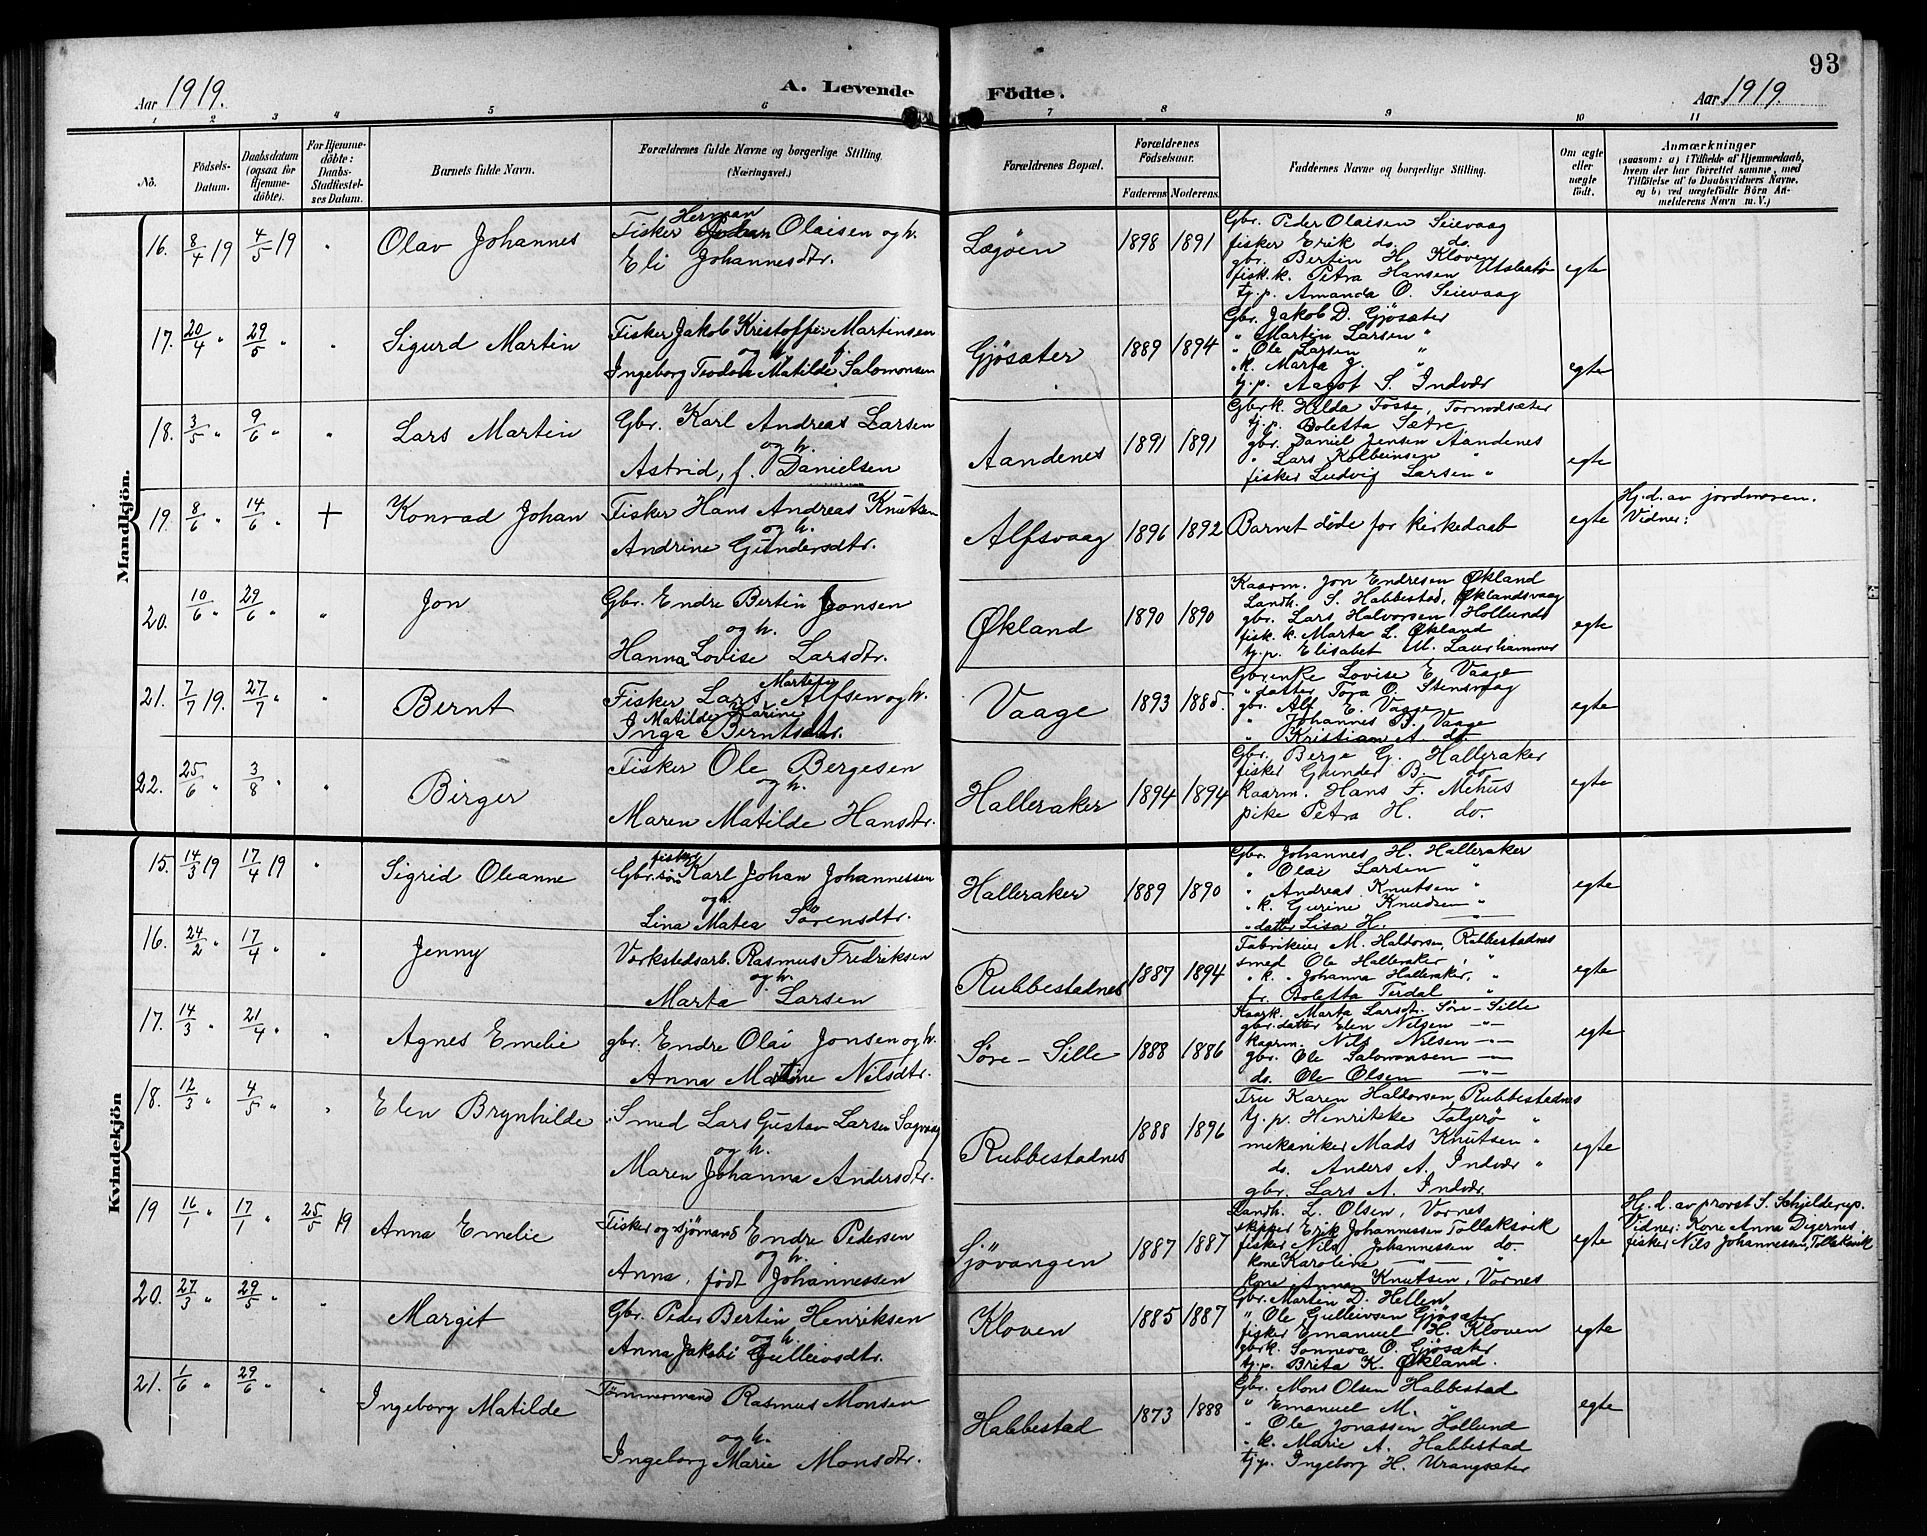 93
Aar 1919. A. Levende Födte. Aar 1919.
1 2 3 4 5 6 7 8 9 10 11
No. Födsels-Datum. Daabsdatum (ogsaa for Hjemmedöbte). For Hjemmedöbte: Daabs-Stadfæstelses Datum. Barnets fulde Navn. Forældrenes fulde Navne og borgerlige Stilling. (Næringsvei.) Forældrenes Bopæl. Forældrenes Födselsaar. Faderens. Moderens. Faddernes Navne og borgerlige Stilling. Om ægte eller uægte födt. Anmærkninger (saasom: a) i Tilfælde af Hjemmedaab, hvem der har forrettet samme, med Tilföielse af to Daabsvidners Navne, og b) ved uægtefödte Börn Anmelderens Navn m. V.)
Mandkjön.
16. 8/4 19 4/5 19 " Olav Johannes
Fisker Herman Olaisen og h.
Eli Johannesdtr.
Lægøen 1898 1891
Gbr. Peder Olaisen Seievaag
fisker Erik do. do.
gbr. Bertin H. Kloven
fisk.k. Petra Hansen Utslettø
tj.p. Amanda O. Seievaag
egte
17. 20/4 " 29/5 " " Sigurd Martin
Fisker Jakob Kristoffer Martinsen
og h. f.
Ingeborg Teodora Matilde Salomonsen
Gjøsæter 1889 1894
Gbr. Jakob D. Gjøsæter
" Martin Larsen "
" Ole Larsen "
" k. Marta J. "
tj.p. Aagot S. Indvær
egte
18. 3/5 " 9/6 " " Lars Martin
Gbr. Karl Andreas Larsen
og h.
Astrid, f. Danielsen
Aandenes 1891 1891
Gbrk. Hilda Tosse, Tornodsæter
tj.p. Boletta Sætre
gbr. Daniel Jensen Aandenes
" Lars Kolbeinsen "
fisker Ludvig Larsen "
egte
19. 8/6 " 14/6 " + Konrad Johan
Fisker Hans Andreas Knutsen
og h.
Andrine Gundersdtr.
Alfsvaag 1896 1892 Barnet døde før kirkedaab egte
Hj.d. av jordmoren.
Vidner:
20. 10/6 29/6 " " Jon
Gbr. Endre Bertin Jonsen
og h.
Hanna Lovise Larsdtr.
Økland 1890 1890
Kaarm. Jon Endresen Økland
Landh. S. Habbestad, Øklandsvaag
gbr. Lars Halvorsen Hollund
fisk. k. Marta L. Økland
tj.p. Elisabet M. Laurhammer
egte
21. 7/7 19. 27/7 " " Bernt
Fisker Lars Martin Alfsen og h.
Matilde Karine
Inga Berntsdtr.
Vaage 1893 1885.
Gbrenke Lovise E. Vaage
" datter Tora O. Stensvaag
gbr. Alf E. Vaage
" Johannes B. Vaage
" Kristian A. do.
egte
22. 25/6 " 3/8 " " Birger
Fisker Ole Bergesen
og h.
Maren Matilde Hansdtr.
Halleraker 1894 1894
Gbr. Berge G. Halleraker
fisker Gunder B. do
kaarm. Hans F. Mehus
pike Petra H. do.
egte
Kvindekjön
15. 14/3 19 17/4 19 " Sigrid Oleanne
fisker
Gbr.søn Karl Johan Johannessen
og h.
Lina Matea Sörensdtr.
Halleraker 1889 1890
Gbr. Johannes H. Halleraker
" Olai Larsen "
" Andreas Knutsen "
" k. Gurine Knudsen "
" datter Lisa H.
egte
16. 24/2 " 17/4 " " Jenny
Verkstedsarb. Rasmus Fredriksen
og h.
Marta Larsen
Rubbestadnes 1887 1894
Fabrikeier M. Haldorsen, Rubbestadnes
smed Ole Halleraker, "
" k. " Johanna Halleraker, "
fr. Boletta Terdal "
egte
17. 14/3 " 21/4 " " Agnes Emelie
gbr. Endre Olai Jonsen og h.
Anna Martine Nilsdtr.
Söre-Sille 1888 1886
Kaark. Marta Larsdt. Söre-Sille
gbr.datter Elen Nilsen -"-
kaarm. Nils Nilsen -"-
gbr. Ole Salomonsen -"-
do. Ole Olsen -"-
egte
18. 12/3 " 4/5 " " Elen Brynhilde
Smed Lars Gustav Larsen Sagvaag
og h.
Maren Johanna Andersdtr.
Rubbestadnes 1888 1896
Fru Karen Haldorsen, Rubbestadnes
tj.p. Henrikke Talgerö "
mekaniker Mads Knutsen "
do. Anders A. Indvær "
gbr. Lars A. Indvær.
egte
19 16/1 " 17/1 " 25/5 19 Anna Emelie
Fisker og sjömand Endre Pedersen
og h.
Anna, födt Johannessen
Sjövangen 1887 1887
Landh. L. Olsen, Vornes
skipper Erik Johannessen Tollaksvik
fisker Nils Johannessen do.
kone Karoline -"-
kone Anna Knutsen, Vornes
egte
Hj.d. av provst S. Schjelderup.
Vidner: Kone Anna Digernes,
fisker Nils Johannessen, Tollaksvik
20. 27/3 " 29/5 " " Margit
Gbr. Peder Bertin Henriksen
og h.
Anna Jakobi Gulleivsdtr.
Kloven 1885 1887
Gbr. Martin D. Hellen
" Ole Gulleivsen Gjøsæter
fisker Emanuel H. Kloven
gbrk. Sonneva O. Gjøsæter
tj.p. Brita K. Økland.
egte
21. 1/6 " 29/6 " " Ingeborg Matilde
Tømmermand Rasmus Monsen
og h.
Ingeborg Marie Monsdtr.
Habbestad 1873 1888
Gbr. Mons Olsen Habbestad
" Emanuel M. "
" Ole Jonassen Hollund
" k. Marie A. Habbestad
tj.p. Ingeborg H. Urangsæter
egte